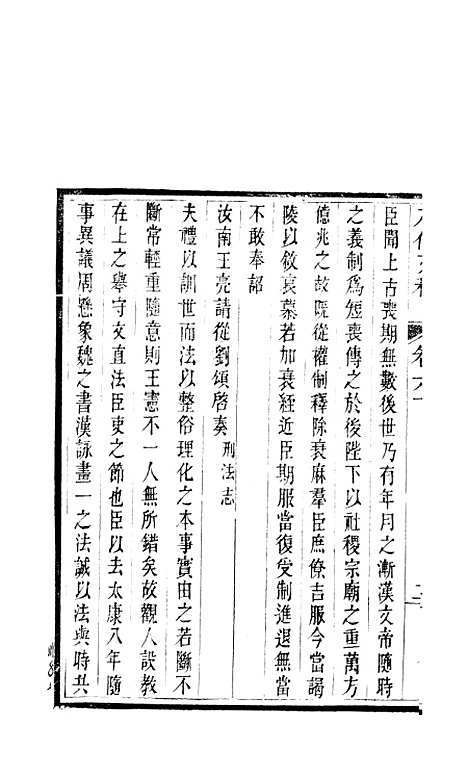 臣聞上古喪期無數後世乃有年月之漸漢文帝隨時
之義制爲短喪傳之於後陛下以社稷宗廟之重萬方
億兆之故既從權制釋除衰麻羣臣庶僚吉服今當謁
陵以敘哀慕若加衰絰近臣期服當復受制進退無當
不敢奉詔
汝南王亮請從劉頌啓奏 刑法志
夫禮以訓世而法以整俗理化之本事實由之若斷不
斷常輕重隨意則王憲不一人無所錯矣故觀人設教
在上之舉守文直法臣吏之節也臣以去太康八年隨
事異議周懸象魏之書漢詠畫一之法誠以法與時共